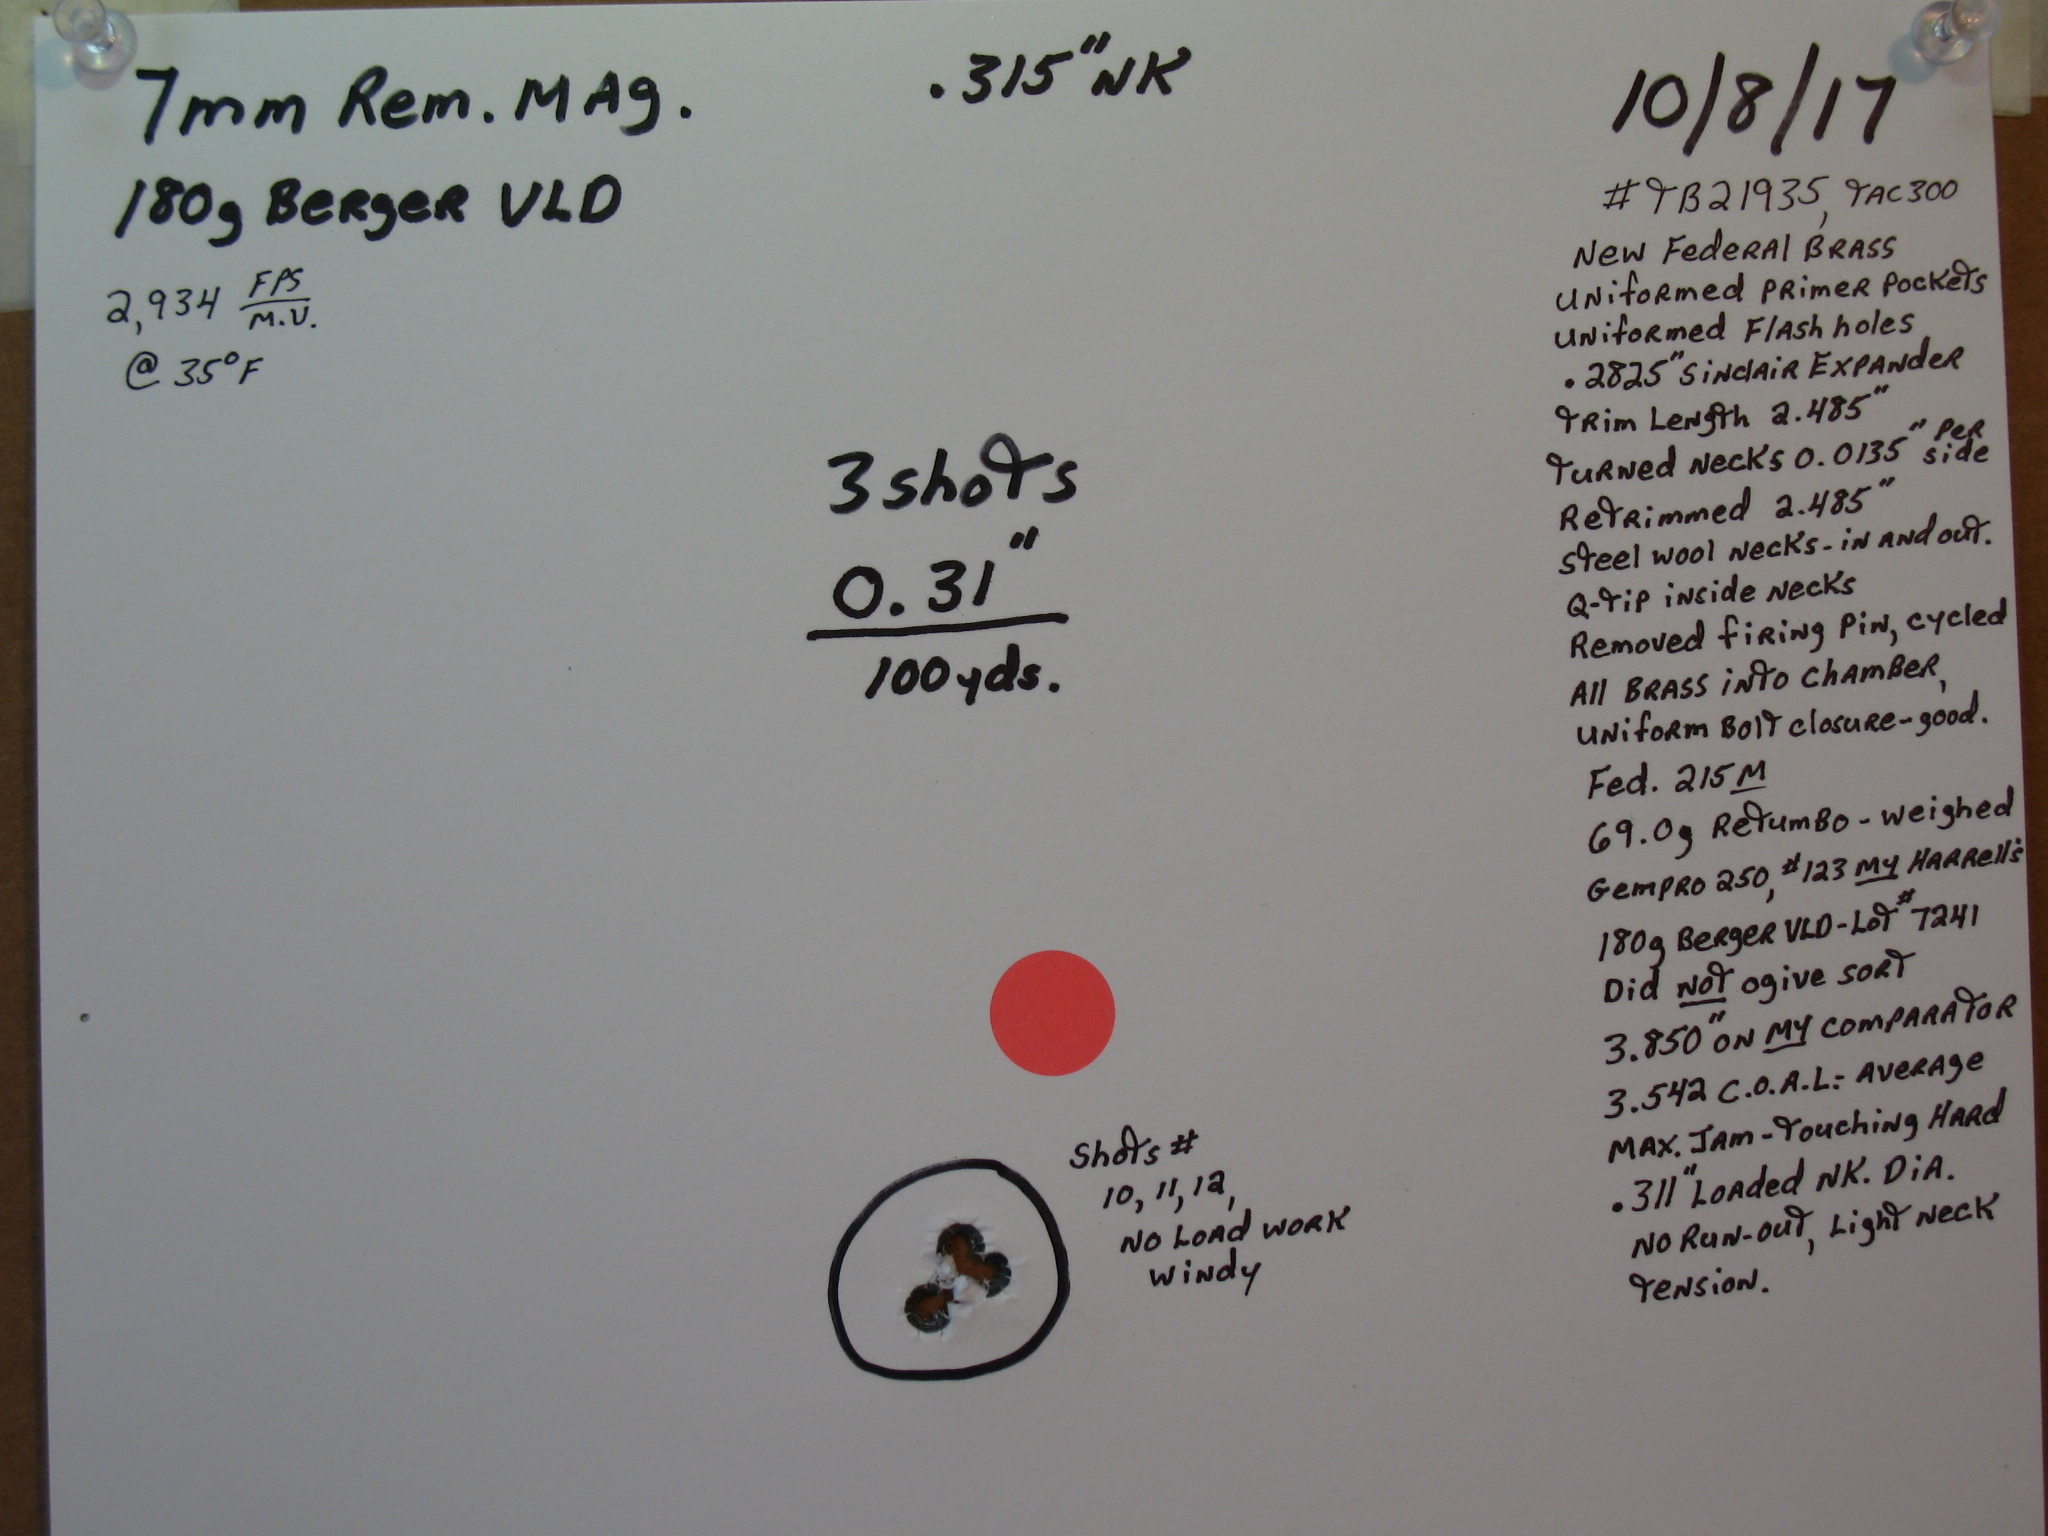 7mm Rem. MAg.
180g Berger VLD
2,934 FPS
M.V.
@ 35°F
.315" NK
10/8/17
#TB21935, TAC300
New Federal Brass
Uniformed Primer Pockets
Uniformed Flash holes
.2825" Sinclair Expander
Trim Length 2.485"
Turned Necks 0.0135" Per side
Retrimmed 2.485"
Steel wool necks - in and out.
Q-tip inside necks
Removed firing pin, cycled
All Brass into chamber,
Uniform Bolt closure - good.
Fed. 215M
69.0g Retumbo - weighed
GemPro 250, #123 My Harrell's
180g Berger VLD - Lot #7241
Did NOT ogive sort
3.850" on MY comparator
3.542 C.O.A.L. - Average
Max. Jam - Touching Hard
.311" Loaded NK. Dia.
No Run-out, Light Neck
Tension.
3 shots
0.31"
100yds.
Shots #
10, 11, 12,
No Load work
Windy